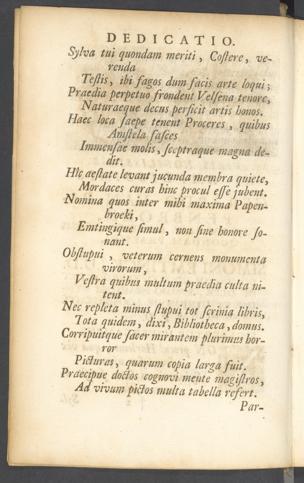 DEDICATIO.
Sylva tui quondam meriti, Costere, ve-
renda
Testis, ibi fagos dum facis arte loqui;
Praedia perpetuo frondent Velsena tenore,
Naturaeque decus persicit artis honos.
Haec loca saepe tenent Proceres, quibus
Amstela fasces
Immensae molis, sceptraque magna de-
dit.
Hîc aestate levant jucunda membra quiete,
Mordaces curas hinc procul esse jubent.
Nomina quos inter mihi maxima Papen-
broeki,
Emtingique simul, non sine honore so-
nant.
Obstupui, veterum cernens monumenta
virorum,
Vestra quibus multum praedia culta ni-
tent.
Nec repleta minus stupui tot scrinia libris,
Tota quidem, dixi, Bibliotheca, domus.
Corripuitque sacer mirantem plurimus hor-
ror
Picturas, quarum copia larga fuit.
Praecipue doctos cognovi mente magistros,
Ad vivum pictos multa tabella refert.
Par-